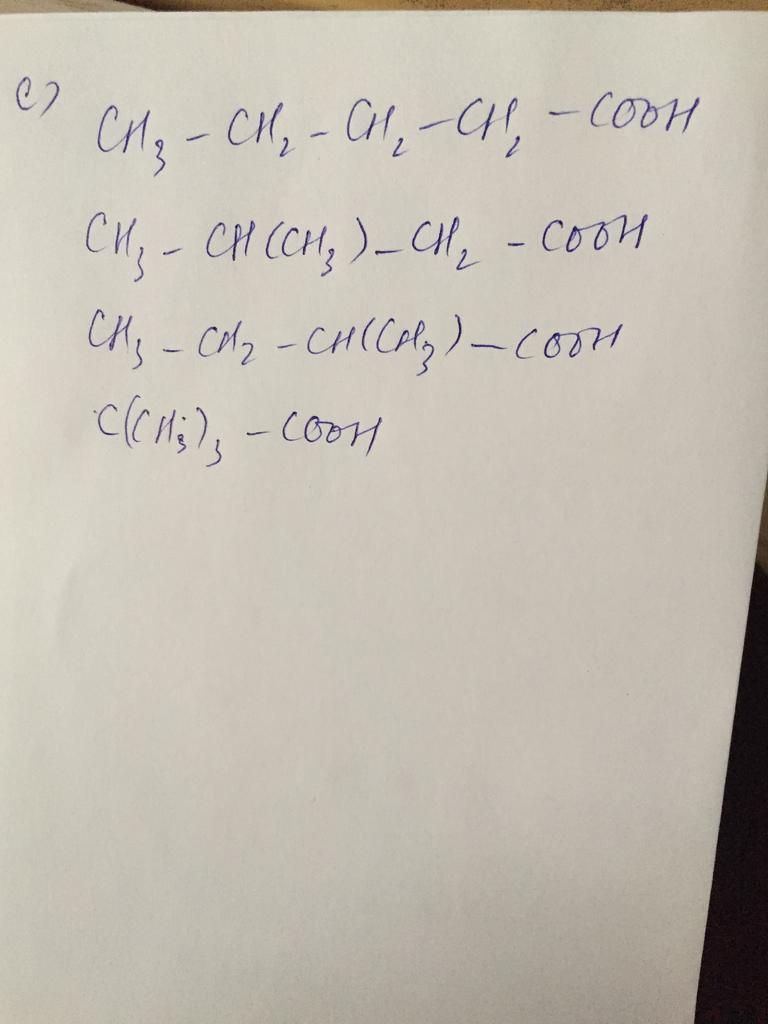 c) CH₃ – CH₂ – CH₂ – CH₂ – COOH
CH₃ – CH(CH₃) – CH₂ – COOH
CH₃ – CH₂ – CH(CH₃) – COOH
C(CH₃)₃ – COOH